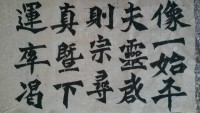 像一始平
夫靈啟
則宗尋
真暨下
運率渴